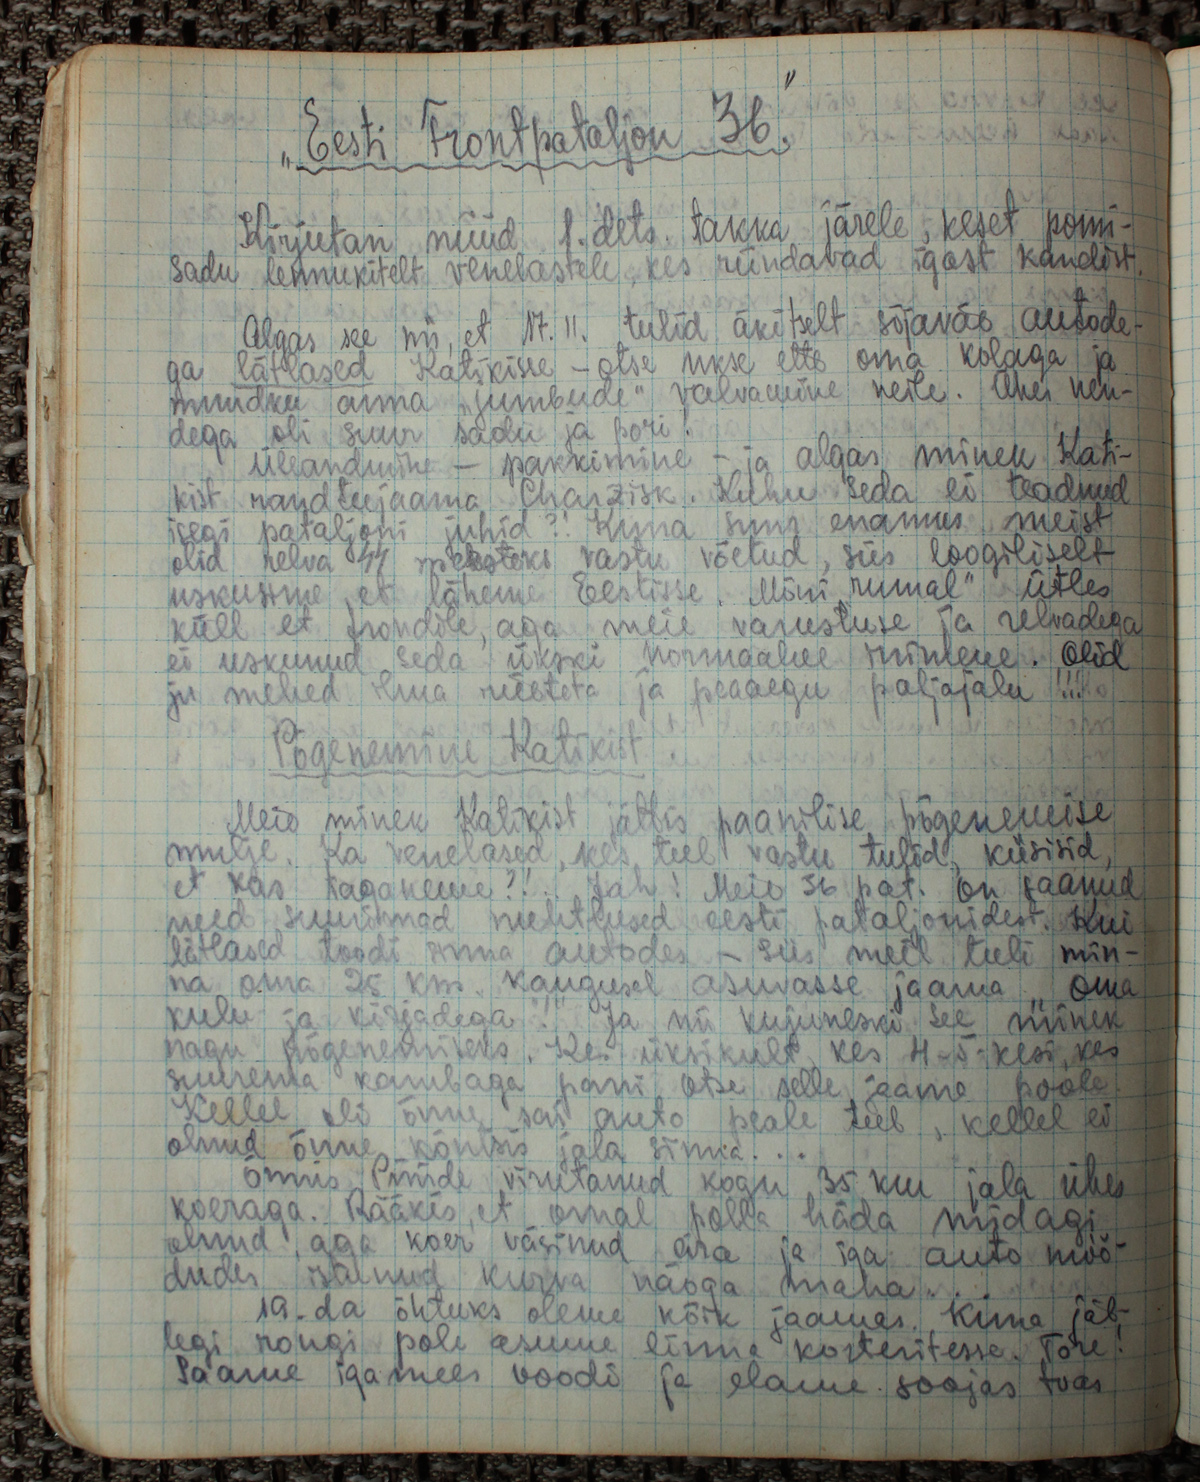 „Eesti Frontpataljon 36."
Kirjutan nüüd 1. dets. takka järele, keset pomi-
sadu lennukitelt venelastele, kes ründavad igast kandist.
Algas see nii, et 17. II. tulid äkitselt sõjaväe autode-
ga lätlased Katikisse – otse ukse ette oma kolaga ja
muudku anna „jumbude" valvamine neile. Ühes nen-
dega oli suur sadu ja pori!
Üleandmine – pakkimine – ja algas minek Kati-
kist raudteejaama Charzisk. Kuhu seda ei teadnud
isegi pataljoni juhid?! Kuna suur enamus meist
olid relva vastu võetud, siis loogiliselt
uskusime, et läheme Eestisse. Mõni „rumal" ütles
küll et frondile, aga meie varustuse ja relvadega
ei uskunud seda ükski normaalne inimene. Olid
ju mehed ilma riieteta ja peaaegu paljajalu !!!
Põgenemine Katikist
Meie minek Katikist jättis paanilise põgenemise
mulje. Ka venelased, kes teel vastu tulid, küsisid,
et kas taganeme?!. Jah! Meie 36 pat. on saanud
need suurimad eesti pataljonidest. Kui
lätlased toodi sinna autodes – siis meil tuli min-
na oma 25 km. kaugusel asuvasse jaama „oma
kulu ja kirjadega!" Ja nii kujuneski see minek
nagu põgenemiseks. Kes üksikult, kes 4-5-kesi, kes
suurema kambaga pani otse selle jaama poole.
Kellel oli õnne, sai auto peale teel, kellel ei
olnud õnne, kõntsis jala sinna...
Õnnis Piiride virutanud kogu 35 km jala ühes
koeraga. Rääkis, et omal polla häda midagi
olnud, aga koer väsinud ära ja iga auto möö-
dudes kurva näoga maha...
19-da õhtuks oleme kõik jaamas. Kuna jäl-
legi rongi pole asume linna korteritesse. Tore!
Saame igamees voodi ja elame soojas toas